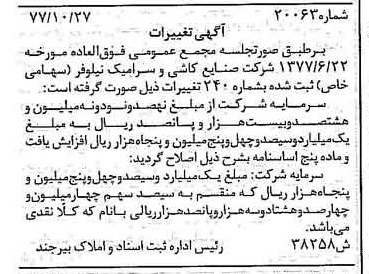 شماره۲۰۰۶۳ ۷۷/۱۰/۲۷
آگهی تغییرات
برطبق صورتجلسه مجمع عمومی فوق‌العاده مورخه
۱۳۷۷/۶/۲۲ شرکت صنایع کاشی و سرامیک نیلوفر (سهامی
خاص) ثبت شده بشماره ۲۴۰ تغییرات ذیل صورت گرفته است:
سرمایه شرکت از مبلغ نهصدونودونه‌میلیون و
هشتصدوبیست‌هزار و پانصد ریال به مبلغ
یک‌میلیاردوسیصدوچهل‌وپنج‌میلیون و پنجاه‌هزار ریال افزایش یافت
و ماده پنج اساسنامه بشرح ذیل اصلاح گردید:
سرمایه شرکت: مبلغ یک‌میلیارد وسیصدوچهل‌وپنج‌میلیون و
پنجاه‌هزار ریال که منقسم به سیصد سهم چهارمیلیون‌و
چهارصدوهشتادوسه‌هزاروپانصدهزارریالی بانام که کلا نقدی
می‌باشد.
ش۳۸۲۵۸ رئیس اداره ثبت اسناد و املاک بیرجند